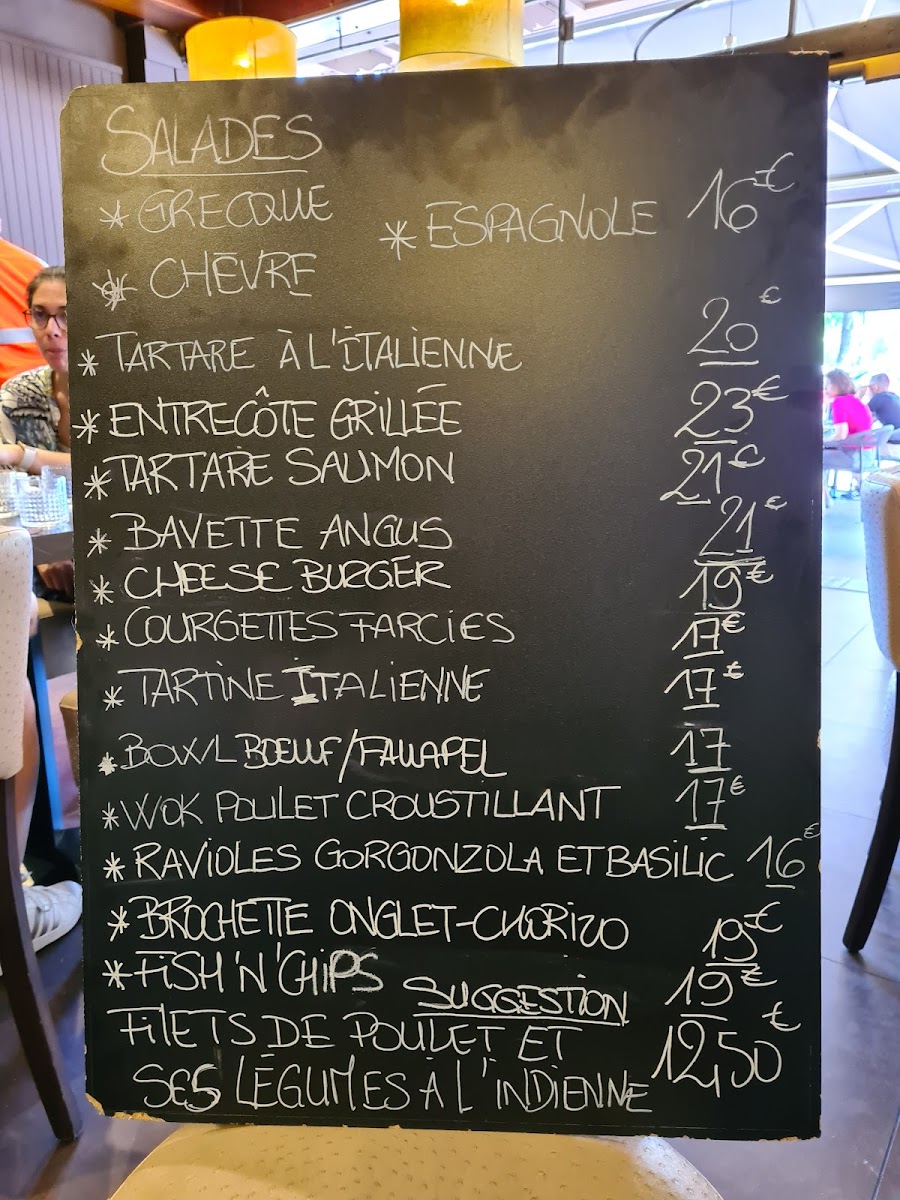 SALADES
* GRECQUE
* ESPAGNOLE 16€
* CHÈVRE
* TARTARE À L'ITALIENNE 20€
* ENTRECÔTE GRILLÉE 23€
* TARTARE SAUMON 21€
* BAVETTE ANGUS 21€
* CHEESE BURGER 19€
* COURGETTES FARCIES 17€
* TARTINE ITALIENNE 17€
* BOWL BOEUF/FALLAFEL 17
* WOK POULET CROUSTILLANT 17€
* RAVIOLES GORGONZOLA ET BASILIC 16€
* BROCHETTE ONGLET-CHORIZO 19€
* FISH'N'CHIPS 19€
SUGGESTION
FILETS DE POULET ET
SES LÉGUMES À L'INDIENNE 12,50€